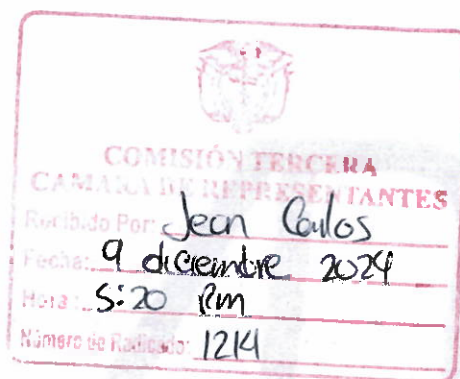 COMISIÓN TERCERA
CAMARA DE REPRESENTANTES
Recibido Por: Jean Carlos
Fecha: 9 diciembre 2024
Hora: 5:20 Pm
Número de Radicado: 1214